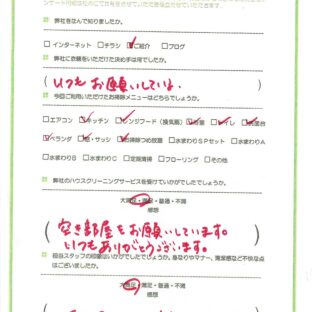 弊社をなんで知りましたか。
□インターネット □チラシ □ご紹介 □ブログ
弊社に依頼をいただけた決め手は何でしたか。
いつもお願いしている。
今回ご利用いただけたお掃除メニューはどちらでしょうか。
□エアコン □キッチン □レンジフード(換気扇) □お風呂 □トイレ □洗面台
□ベランダ □窓・サッシ □お掃除つめ放題 □水まわりSPセット □水まわりA
□水まわりB □水まわりC □定期清掃 □フローリング □その他
弊社のハウスクリーニングサービスを受けていかがでしたでしょうか。
大満足・満足・普通・不満
感想
空き部屋をお願いしています。
いつもありがとうございます。
担当スタッフの印象はいかがでしたでしょうか。身なりやマナー、清潔感など不快な点
はございましたか。
大満足・満足・普通・不満
感想